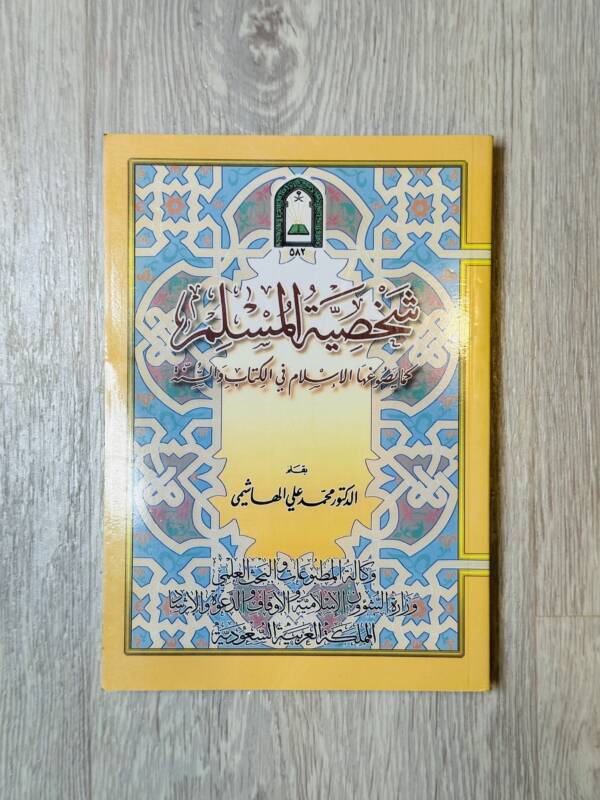 ٥٨٢
شَخْصِيَّةُ المُسْلِمِ
كما يصوغها الإسلام في الكتاب والسنّة
بقلم
الدكتور محمّد علي الهاشمي
وكالة المطبوعات والبحث العلمي
وزارة الشؤون الإسلامية والأوقاف والدعوة والإرشاد
المملكة العربية السعودية